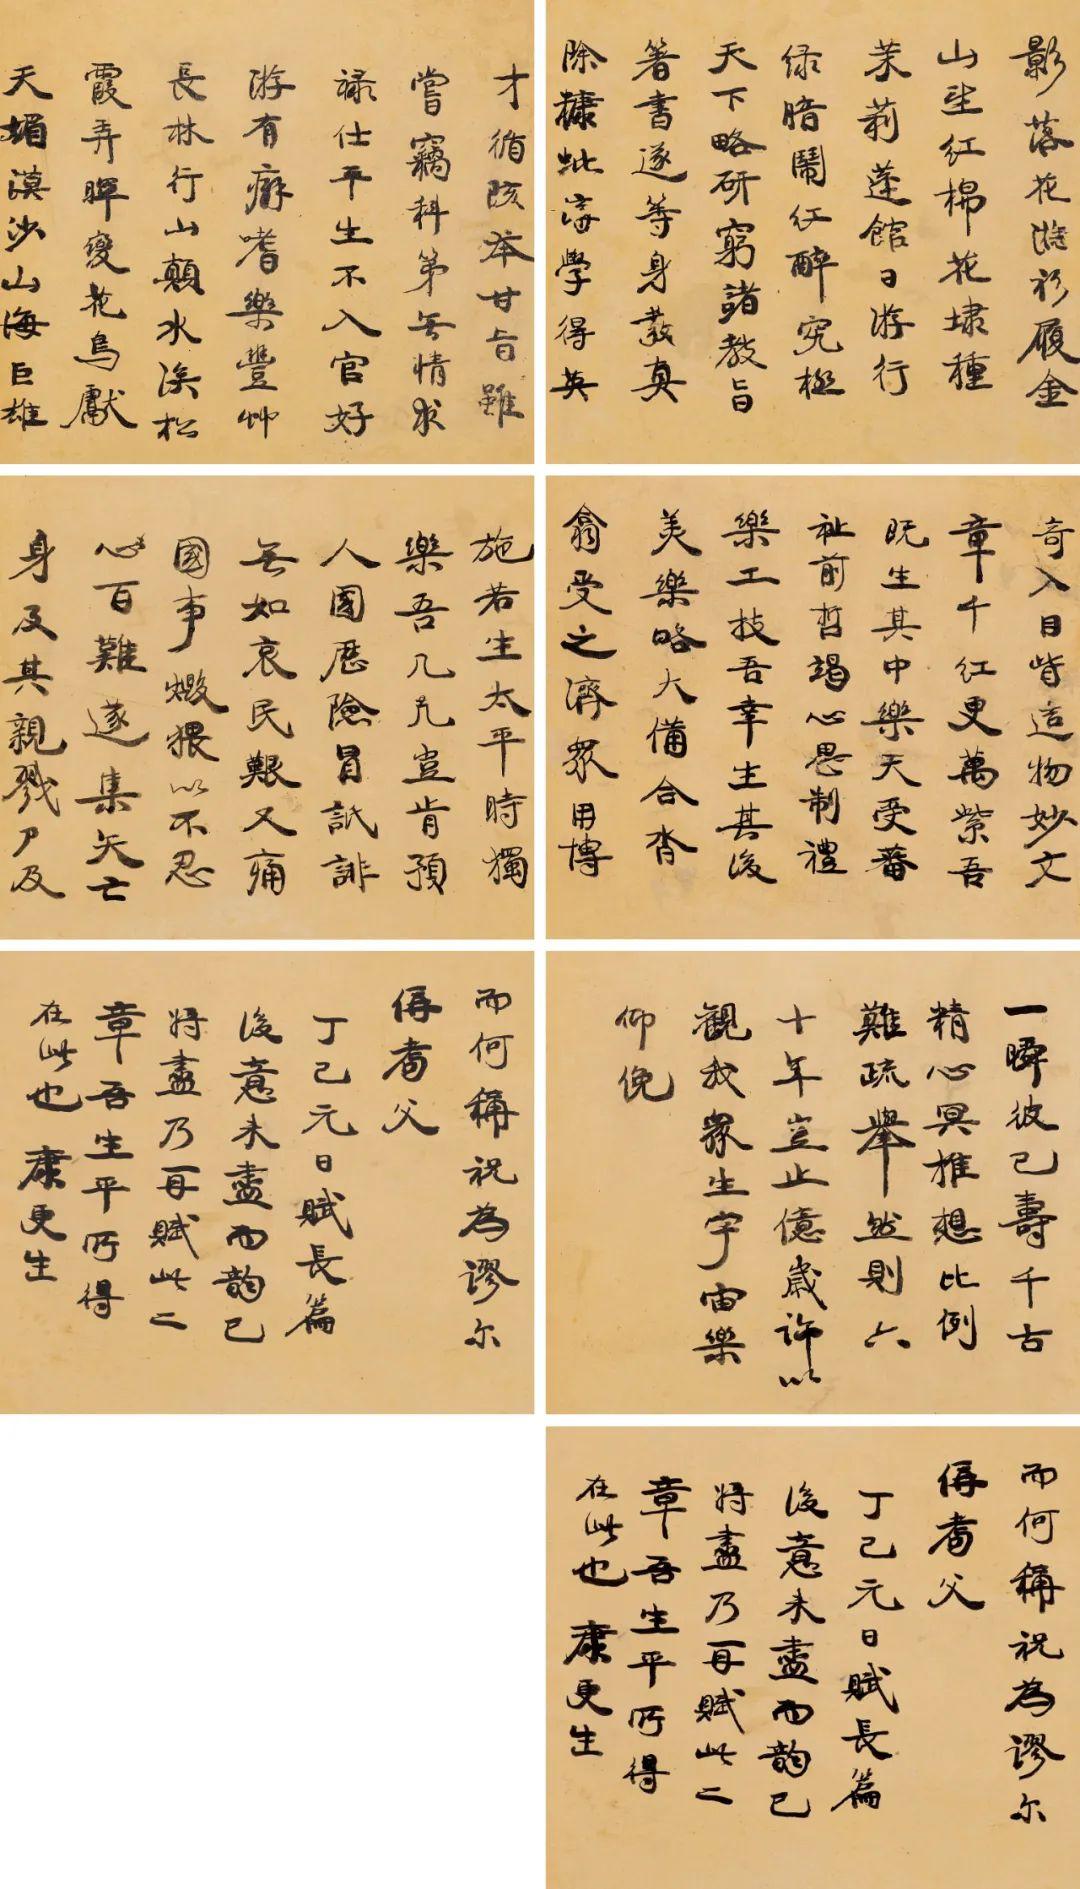 影落花滿衫履金
山堊紅棉花埭種
茉莉蓬館日游行
绿暗鬧紅醉究極
天下略研窮諸教旨
著書遂等身嚴真
除糠粃講學得英
才循陔奉甘旨雖
嘗竊科第無情求
祿仕平生不入官好
游有癖嗜樂豐艸
長林行山顛水涘松
霞弄暉變花鳥獻
天媚漠沙山海巨雄
奇入目皆造物妙文
章千紅更萬紫吾
既生其中樂天受蕃
祉前哲竭心思制禮
樂工技吾幸生其後
美樂略大備合沓
翕受之濟眾用博
施若生太平時獨
樂吾几几豈肯預
人國歷險冒詆誹
無如哀民艱又痛
國事燬猥以不忍
心百難遂集矢亡
身及其親戮尸及
一瞬彼已壽千古
精心冥推想比例
難疏舉然則六
十年豈止億歲許以
觀我眾生宇宙樂
仰俛
而何稱祝為謬尔
俦耆父
丁巳元日賦長篇
後意未盡而韵已
將盡乃再賦此二
章吾生平所得
在此也 康更生
而何稱祝為謬尔
俦耆父
丁巳元日賦長篇
後意未盡而韵已
將盡乃再賦此二
章吾生平所得
在此也 康更生